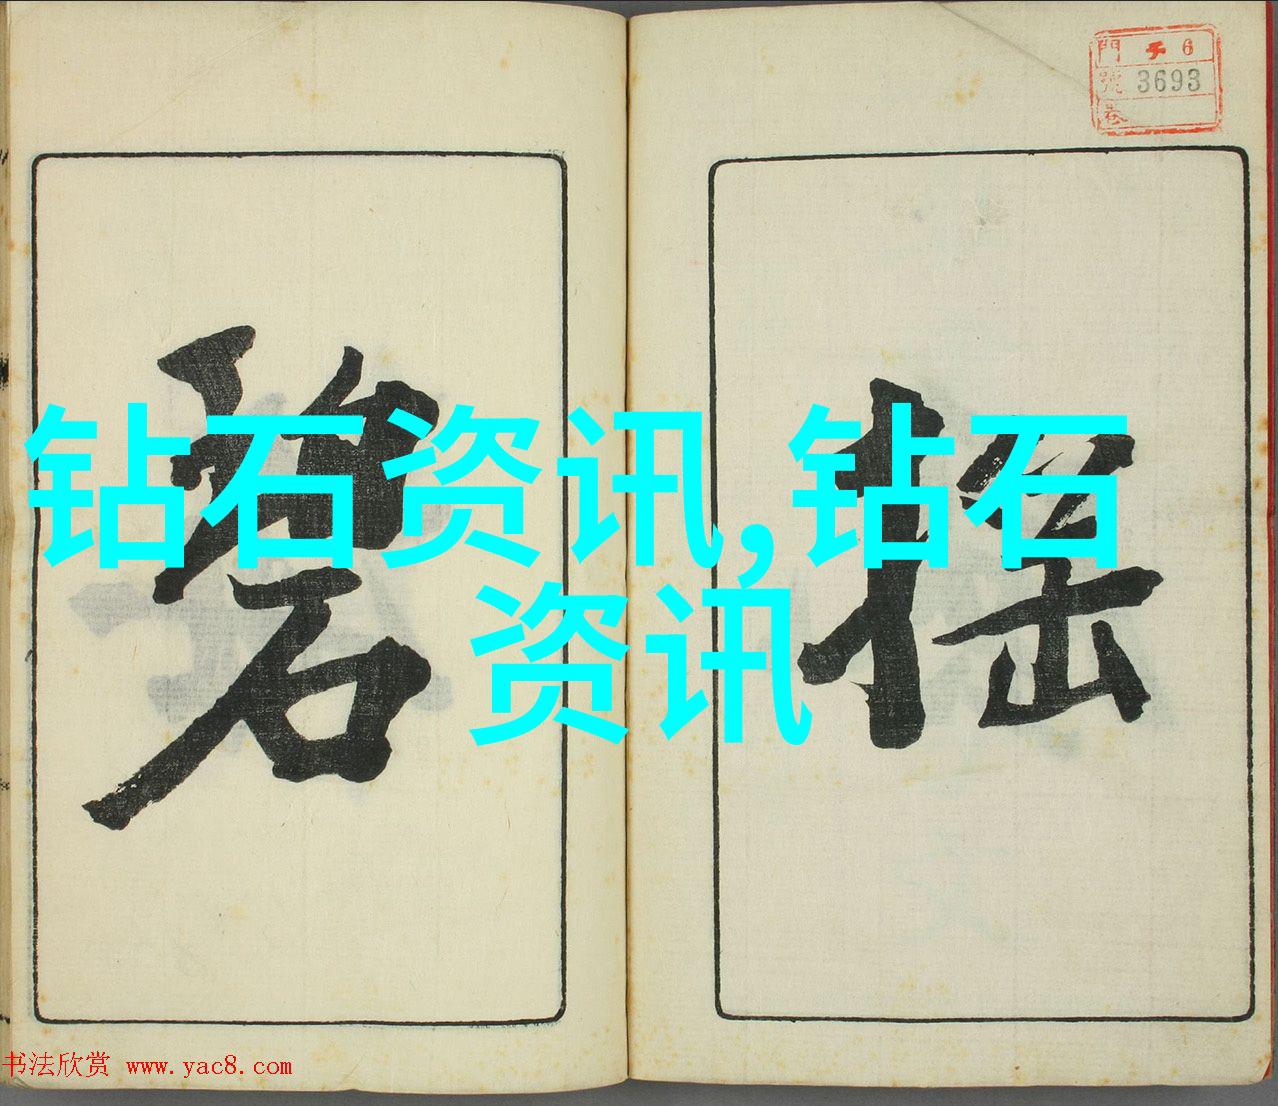 門 チ 6
號 3693
卷
搖
碧
钻石资讯,钻石
资讯
书法欣赏 www.yac8.com